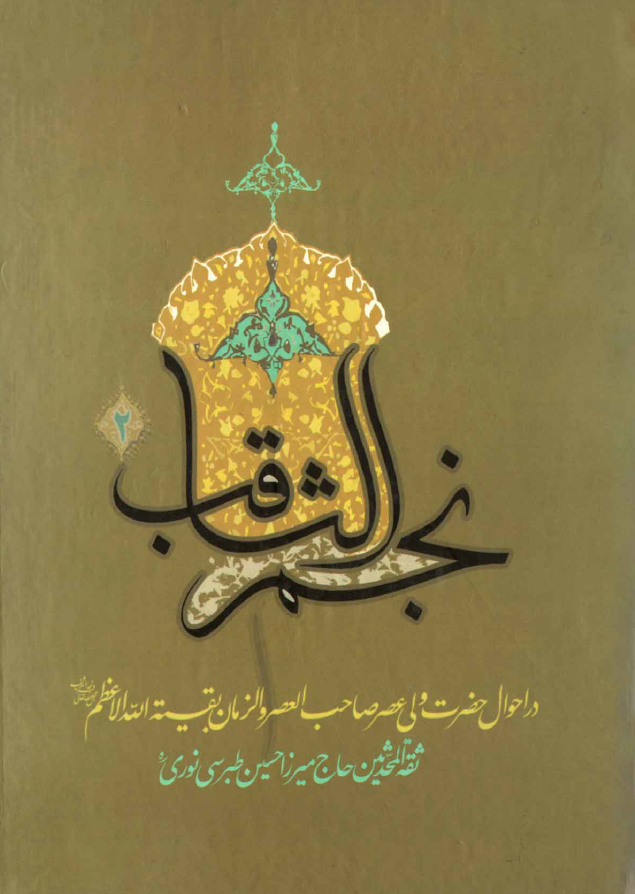 نجم الثاقب
۲
در احوال حضرت ولی عصر صاحب العصر والزمان بقیة الله الاعظم
ثقة المحدثین حاج میرزا حسین طبرسی نوری